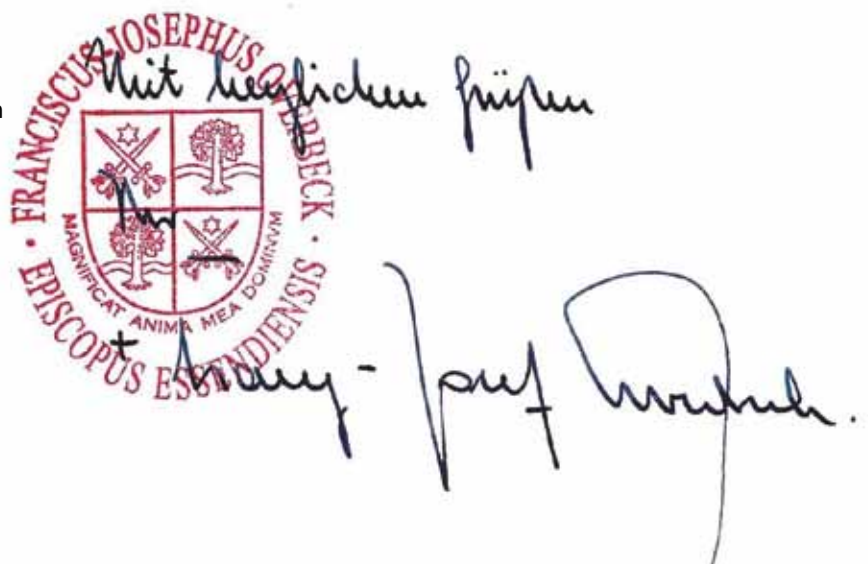 FRANCISCUS-JOSEPHUS OVERBECK · EPISCOPUS ESSENDIENSIS ·
MAGNIFICAT ANIMA MEA DOMINVM
n
Mit herzlichen Grüßen
Ihr
+ Franz-Josef Overbeck.